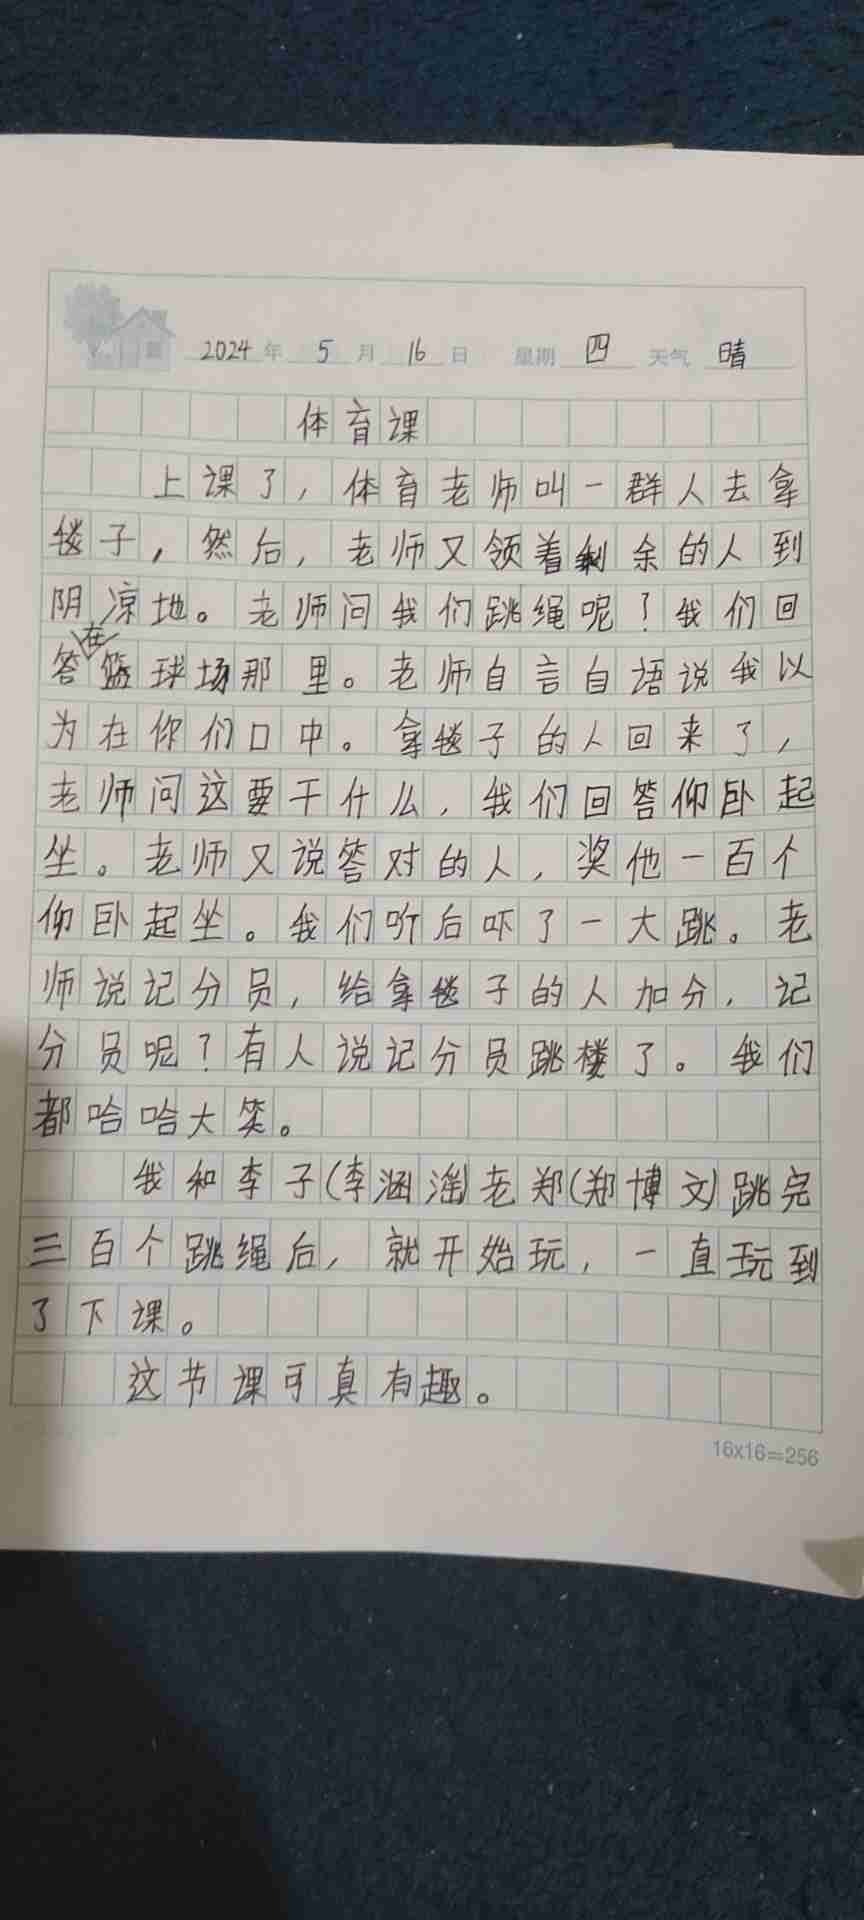 2024年 5月 16日 星期 四 天气 晴
体育课
上课了，体育老师叫一群人去拿
毯子，然后，老师又领着剩余的人到
阴凉地。老师问我们跳绳呢？我们回
答在篮球场那里。老师自言自语说我以
为在你们口中。拿毯子的人回来了，
老师问这要干什么，我们回答仰卧起
坐。老师又说答对的人，奖他一百个
仰卧起坐。我们听后吓了一大跳。老
师说记分员，给拿毯子的人加分，记
分员呢？有人说记分员跳楼了。我们
都哈哈大笑。
我和李子(李涵滛)老郑(郑博文)跳完
三百个跳绳后，就开始玩，一直玩到
了下课。
这节课可真有趣。
16x16=256